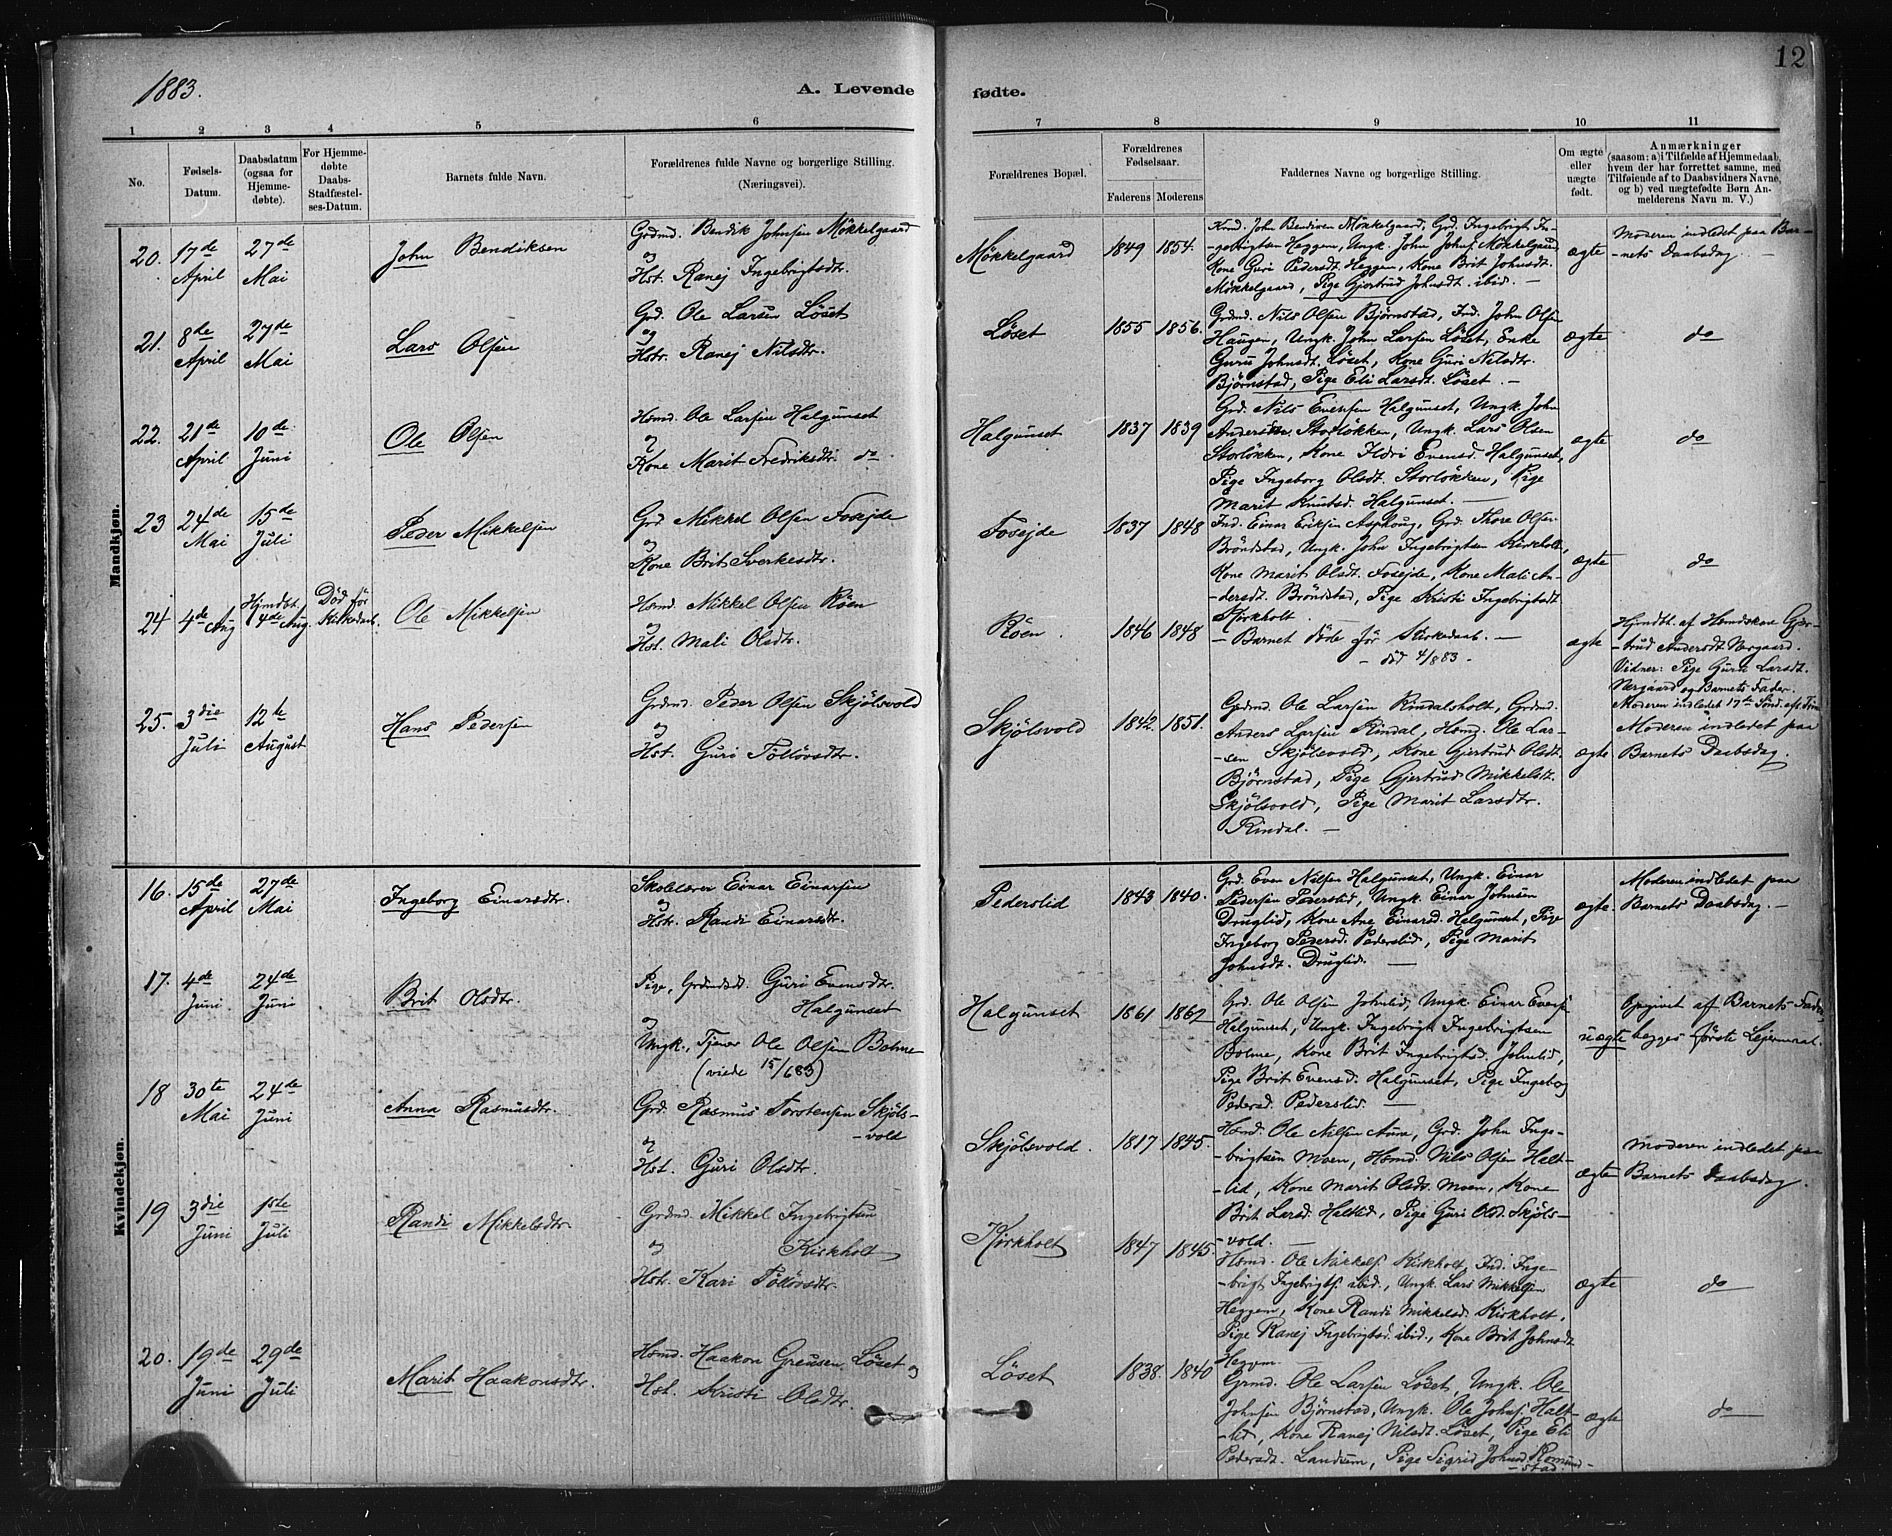 1883.
A. Levende fødte.
12
1 2 3 4 5 6 7 8 9 10 11
No.
Fødsels-
Datum.
Daabsdatum
(ogsaa for
Hjemme-
døbte).
For Hjemme-
døbte
Daabs-
Stadfæstel-
ses-Datum.
Barnets fulde Navn.
Forældrenes fulde Navne og borgerlige Stilling.
(Næringsvei).
Forældrenes Bopæl.
Forældrenes
Fødselsaar.
Faderens Moderens
Faddernes Navne og borgerlige Stilling.
Om ægte
eller
uægte
født.
Anmærkninger
(saasom: a) i Tilfælde af Hjemmedaab,
hvem der har forrettet samme, med
Tilføiende af to Daabsvidners Navne,
og b) ved uægtefødte Børn An-
melderens Navn m. V.)
Mandkjøn.
20. 17de April
27de Mai
John Bendiksen
Grdmd. Bendik Johnsen Mökkelgaard
og
Hst. Ranej Ingebrigtsdtr.
Mökkelgaard
1849 1854.
Kmd. John Bendixen Mökkelgaard, Grd. Ingebrigt In-
-gebrigtsen Heggem, Ungk. John Johns. Mökkelgaard,
Kone Guri Pedersdt. Heggem, Kone Brit Johnsdt.
Mökkelgaard, Pige Gjertrud Johnsdt. ibid. —
ægte
Moderen indledet paa Bar-
-nets Daabsdag. —
21. 8de April
27de Mai
Lars Olsen
Grd. Ole Larsen Löset
og
Hstr. Ranej Nilsdtr.
Löset
1855 1856.
Grdmd. Nils Olsen Björnstad, Ind. John Olsen
Haugen, Ungk. John Larsen Löset, Enke
Guru Johnsdt. Löset, Kone Guri Nilsdtr.
Björnstad, Pige Eli Larsdt. Löset. —
ægte
do
22. 21de April
10de Juni
Ole Olsen
Hsmd. Ole Larsen Halgunset
og
Kone Marit Fredriksdtr. do
Halgunset
1837 1839
Grd. Nils Evensen Halgunset, Ungk. John
Andersen Storlökken, Ungk. Lars Olsen
Storlökken, Kone Ildri Evensd. Halgunset,
Pige Ingeborg Olsdt. Storlökken, Pige
Marit Knutsd. Halgunset. —
ægte
do
23 24de Mai
15de Juli
Peder Mikkelsen
Grd Mikkel Olsen Fosejde
og
Kone Brit Sverkesdtr.
Fosejde
1837 1848
Ind. Einar Eriksen Asploug, Grd. Thore Olsen
Bröndstad, Ungk. John Ingebrigtsen Kirkholt,
Kone Marit Olsdt. Fosejde, Kone Mali An-
dersdt. Bröndstad, Pige Kristi Ingebrigtsdt
Kjrkholt.
ægte
do
24 4de Aug
Hjmdöbt 4de Aug.
Död för Kirkedaab.
Ole Mikkelsen
Hsmd. Mikkel Olsen Röen
og
Hst. Mali Olsdtr.
Röen
1846 1848
— Barnet döde för Kirkedaab. —
— död 4/8 83 —
ægte
Hjmdth. af Hsmdskone Gjer-
-trud Andersdt Nergaard.
Vidner: Pige Guru Larsdt.
Nergaard og Barnets Fader.
Moderen indledet 17de Sönd. eft. Trin
25. 3die Juli
12te August
Hans Pedersen
Grdmd. Peder Olsen Skjölsvold
og
Hst. Guri Tollövsdtr.
Skjölsvold
1842. 1851.
Grdmd. Ole Larsen Rindalsholt, Grdmd.
Anders Larsen Rindal, Hsmd. Ole Lar-
-sen Skjölsvold, Kone Gjertrud Olsdt.
Björnstad, Pige Gjertrud Mikkelsdt.
Skjölsvold, Pige Marit Larsdtr.
Rindal. —
ægte
Moderen indledet paa
Barnets Daabsdag.
Kvindekjøn.
16. 15de April
27de Mai
Ingeborg Einarsdtr.
Skolelærer Einar Einarsen
og
Hstr. Randi Einarsdt.
Pederslid
1843 1840.
Grd. Even Nilsen Halgunset, Ungk. Einar
Pedersen Pederslid, Ungk. Einar Johnsen
Druglid, Kone Ane Einarsd. Halgunset, Pige
Ingeborg Pedersd. Pederslid, Pige Marit
Johnsdt. Druglid. —
ægte.
Moderen indledet paa
Barnets Daabsdag. —
17. 4de Juni
24de Juni
Brit Olsdtr.
Pige, Grdmdsdt. Guri Evensdtr.
Halgunset
og
Ungk., Tjener Ole Olsen Bolme
(viede 15/6 83)
Halgunset
1861 1862
Grd. Ole Olsen Johnlid, Ungk. Einar Evens.
Halgunset, Ungk. Ingebrigt Ingebrigtsen
Bolme, Kone Brit Ingebrigtsd. Johnlid,
Pige Brit Evensd. Halgunset, Pige Ingeborg
Pedersd. Pederslid. —
uægte
Opgivet af Barnets Fader,
begges förste Lejermaal.
18 30te Mai
24de Juni
Anna Rasmusdtr.
Grd. Rasmus Torstensen Skjöls-
-vold
og
Hst. Guri Olsdtr.
Skjölsvold.
1817 1845.
Hsmd. Ole Nilsen Aune, Grd. John Inge-
-brigtsen Moen, Hsmd. Nils Olsen Halt-
-lid, Kone Marit Olsds. Moen, Kone
Brit Larsd. Haltlid, Pige Guri Olsd. Skjöls-
-vold. —
ægte
Moderen indledet paa
Barnets Daabsdag.
19 3die Juni
1ste Juli
Randi Mikkelsdtr.
Grdmd. Mikkel Ingebrigtsen
og
Kirkholt
Hstr. Kari Tölövsdtr.
Kirkholt
1847 1845.
Hsmd. Ole Mikkels. Kirkholt, Ind. Inge-
-brigt Ingebrigts. ibid., Ungk. Lars Mikkelsen
Heggem, Kone Randi Mikkelsd. Kirkholt,
Pige Ranej Ingebrigtsd. ibid., Kone Brit Johnsdt.
Heggm. —
ægte
do
20. 19de Juni
29de Juli
Marit Haakonsdtr.
Hsmd. Haakon Greusen Löset og
Hst. Kristi Olsdtr.
Löset
1838. 1840
Grmd. Ole Larsen Löset, Ungk. Ole
Johnsen Björnstad, Ungk. Ole Johns. Halt-
-lid, Kone Ranej Nilsdt. Löset, Pige Eli
Pedersdt. Landsem, Pige Sigrid Johnsd Romund-
-stad.
ægte
do